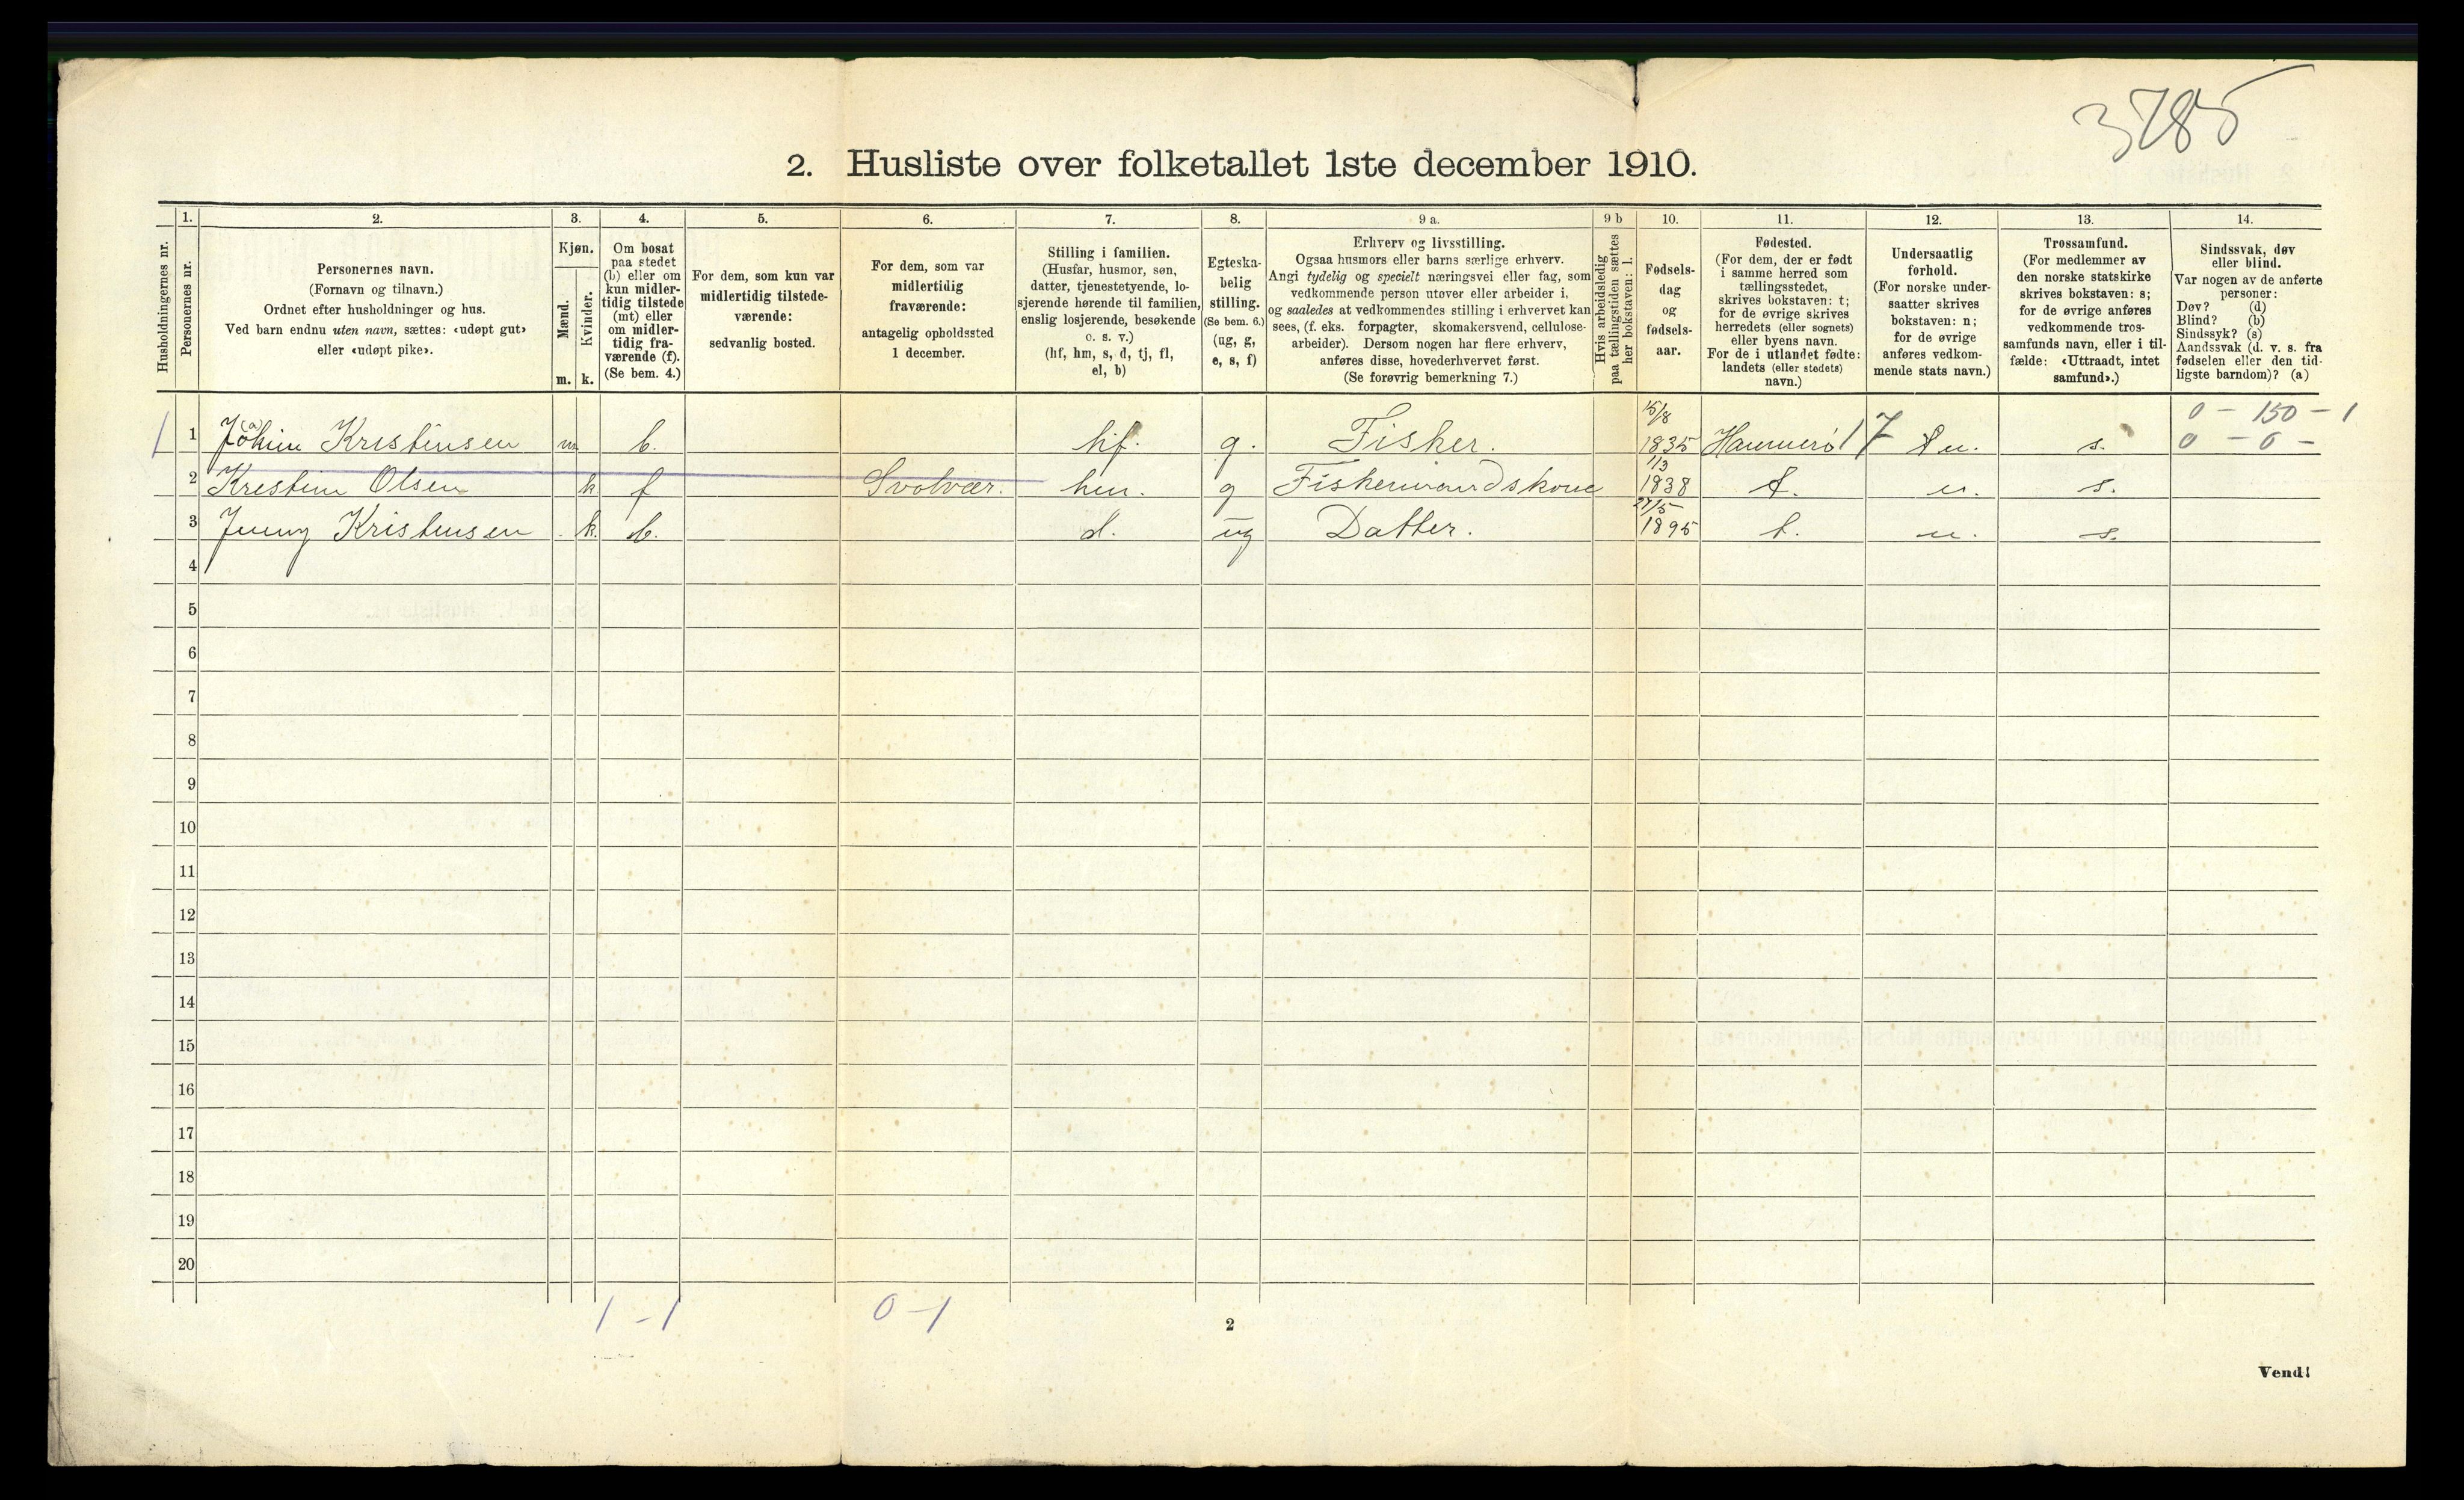 3785
2. Husliste over folketallet 1ste december 1910.
Husholdningernes nr.
1.
Personernes nr.
2.
Personernes navn.
(Fornavn og tilnavn.)
Ordnet efter husholdninger og hus.
Ved barn endnu uten navn, sættes: «udøpt gut»
eller «udøpt pike».
3.
Kjøn.
Mænd.
Kvinder.
m. k.
4.
Om bosat
paa stedet
(b) eller om
kun midler-
tidig tilstede
(mt) eller
om midler-
tidig fra-
værende (f).
(Se bem. 4.)
5.
For dem, som kun var
midlertidig tilstede-
værende:
sedvanlig bosted.
6.
For dem, som var
midlertidig
fraværende:
antagelig opholdssted
1 december.
7.
Stilling i familien.
(Husfar, husmor, søn,
datter, tjenestetyende, lo-
sjerende hørende til familien,
enslig losjerende, besøkende
o. s. v.)
(hf, hm, s, d, tj, fl,
el, b)
8.
Egteska-
belig
stilling.
(Se bem. 6.)
(ug, g,
e, s, f)
9 a.
Erhverv og livsstilling.
Ogsaa husmors eller barns særlige erhverv.
Angi tydelig og specielt næringsvei eller fag, som
vedkommende person utøver eller arbeider i,
og saaledes at vedkommendes stilling i erhvervet kan
sees, (f. eks. forpagter, skomakersvend, cellulose-
arbeider). Dersom nogen har flere erhverv,
anføres disse, hovederhvervet først.
(Se forøvrig bemerkning 7.)
9 b
Hvis arbeidsledig
paa tællingstiden sættes
her bokstaven: l.
10.
Fødsels-
dag
og
fødsels-
aar.
11.
Fødested.
(For dem, der er født
i samme herred som
tællingsstedet,
skrives bokstaven: t;
for de øvrige skrives
herredets (eller sognets)
eller byens navn.
For de i utlandet fødte:
landets (eller stedets)
navn.)
12.
Undersaatlig
forhold.
(For norske under-
saatter skrives
bokstaven: n;
for de øvrige
anføres vedkom-
mende stats navn.)
13.
Trossamfund.
(For medlemmer av
den norske statskirke
skrives bokstaven: s;
for de øvrige anføres
vedkommende tros-
samfunds navn, eller i til-
fælde: «Uttraadt, intet
samfund».)
14.
Sindssvak, døv
eller blind.
Var nogen av de anførte
personer:
Døv? (d)
Blind? (b)
Sindssyk? (s)
Aandssvak (d. v. s. fra
fødselen eller den tid-
ligste barndom)? (a)
0 - 150 - 1
1 1 Johim (a) Kristinsen m b. hf. g. Fisher. 15/8 1835 Hammerö 17 n. s. 0 - 0 -
2 Krestine Olsen k f Svolvær. hm. g Fiskermandskone 1/3 1838 t. n. s.
3 Jenny Kristinsen k. b. d. ug Datter. 27/5 1895 t. n. s.
4
5
6
7
8
9
10
11
12
13
14
15
16
17
18
19
20
1 - 1 0 - 1
2
Vend!